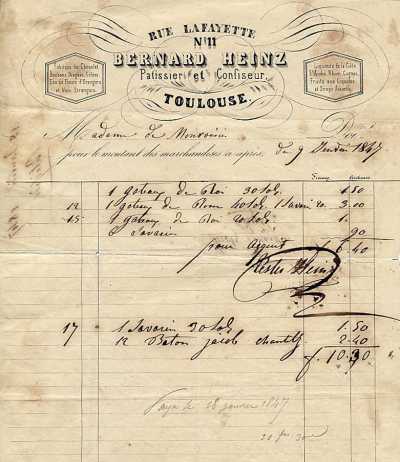 RUE LAFAYETTE
N° 11
BERNARD HEINZ
Patissier et Confiseur,
TOULOUSE.
Fabrique de Chocolat
Bonbons Anglais, Gelées
Eau de Fleurs d'Oranger
et Vins Etrangers.
Liqueurs de la Côte
St André, Rhum, Cognac,
Fruits aux Liqueurs
et Sirops Assortis.
Madame de Doit
pour le montant des marchandises ci après. du 9 Janvier 1847
1 gateau de Roi 30 sols. 1.50
12 1 gateau de Rois 40 sols, 1 Savarin 20. 3.00
15 1 gateau de Roi 20 sols. 1.
6 Savarin 90
pour Acquit 6.40
Heinz
17 1 Savarin 30 sols 1.50
12 Baton jacob chantilly 2.40
f. 10.30
Payé le 18 janvier 1847